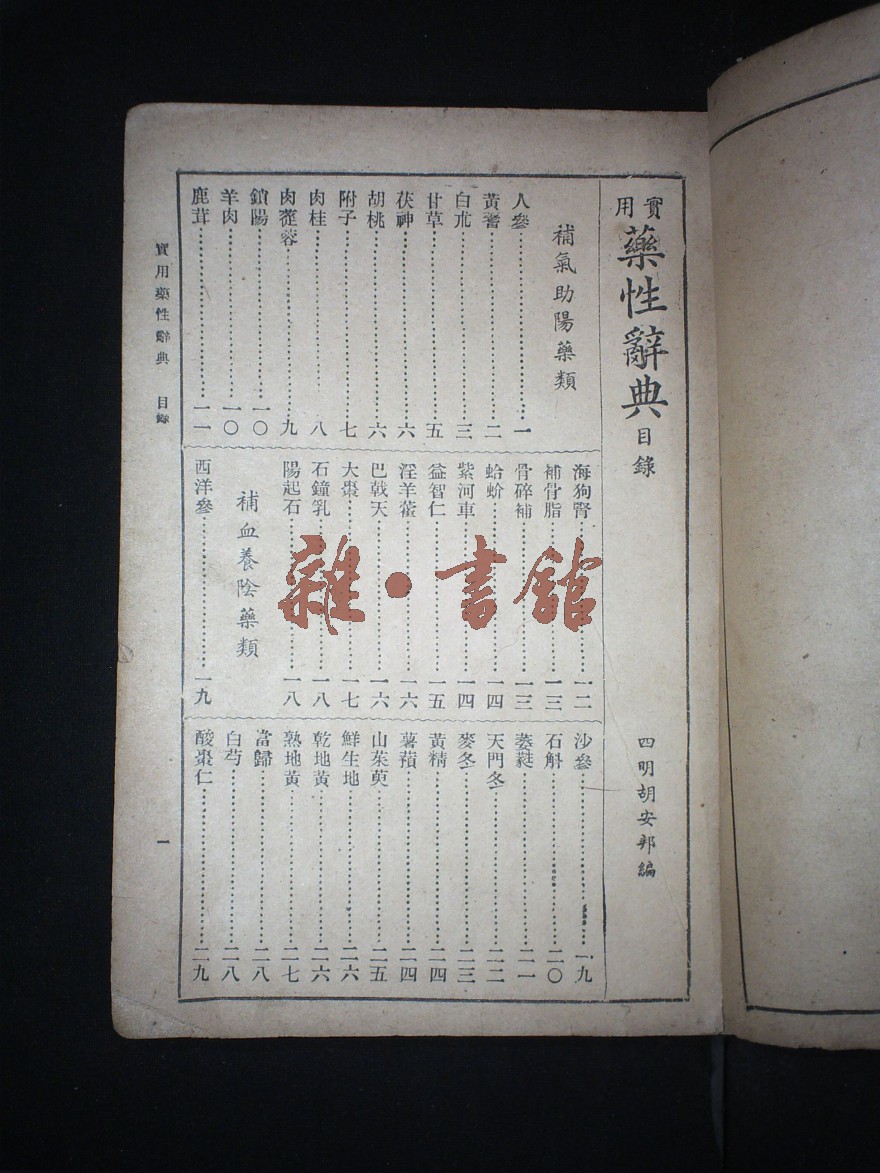 實用藥性辭典目錄
四明胡安邦編
補氣助陽藥類
人參一
黃耆二
白朮三
甘草五
茯神六
胡桃六
附子七
肉桂八
肉蓯蓉九
鎖陽一〇
羊肉一〇
鹿茸一一
海狗腎一二
補骨脂一三
骨碎補一三
蛤蚧一四
紫河車一四
益智仁一五
淫羊藿一六
巴戟天一六
大棗一七
石鐘乳一八
陽起石一八
補血養陰藥類
西洋參一九
沙參一九
石斛二〇
萎蕤二一
天門冬二二
麥冬二三
黃精二四
薯蕷二四
山茱萸二五
鮮生地二六
乾地黃二六
熟地黃二七
當歸二八
白芍二八
酸棗仁二九
實用藥性辭典 目錄 一
雜·書館